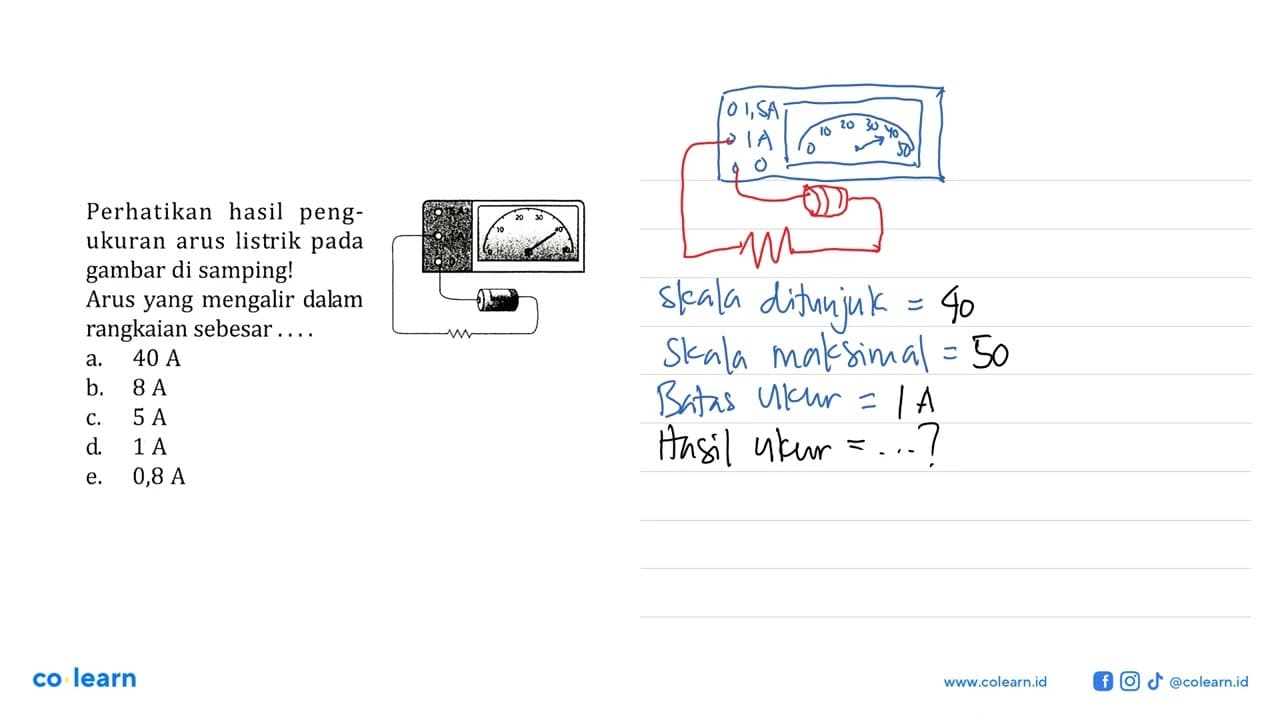 Perhatikan hasil peng-
ukuran arus listrik pada
gambar di samping!
Arus yang mengalir dalam
rangkaian sebesar . . . .
a. 40 A
b. 8 A
c. 5 A
d. 1 A
e. 0,8 A
10 20 30 40
0 1,5A
1A
0
0 10 20 30 40 50
Skala ditunjuk = 40
Skala maksimal = 50
Batas Ukur = 1 A
Hasil ukur = ...?
co learn
www.colearn.id
@colearn.id